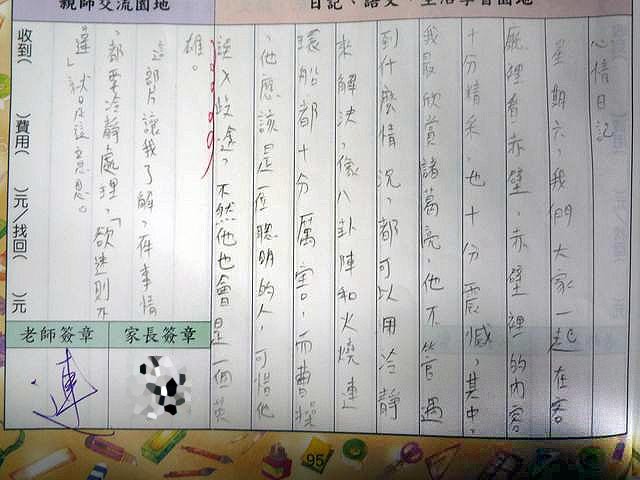 親師交流園地
日記、語文、生活學習園地
心情日記
星期六,我們大家一起在客
廳裡看赤壁,赤壁裡的內容
十分精采,也十分震撼,其中,
我最欣賞諸葛亮,他不管遇
到什麼情況,都可以用冷靜
來解決,像八卦陣和火燒連
環船都十分厲害。而曹操
,他應該是一個聰明的人,可惜他
誤入歧途,不然他也會是一個英
雄。
這部片讓我了解,在事情
,都要冷靜處理,「欲速則不
達」就是這意思。
收到(
)費用(
)元/找回(
)元
老師簽章
家長簽章
連
95